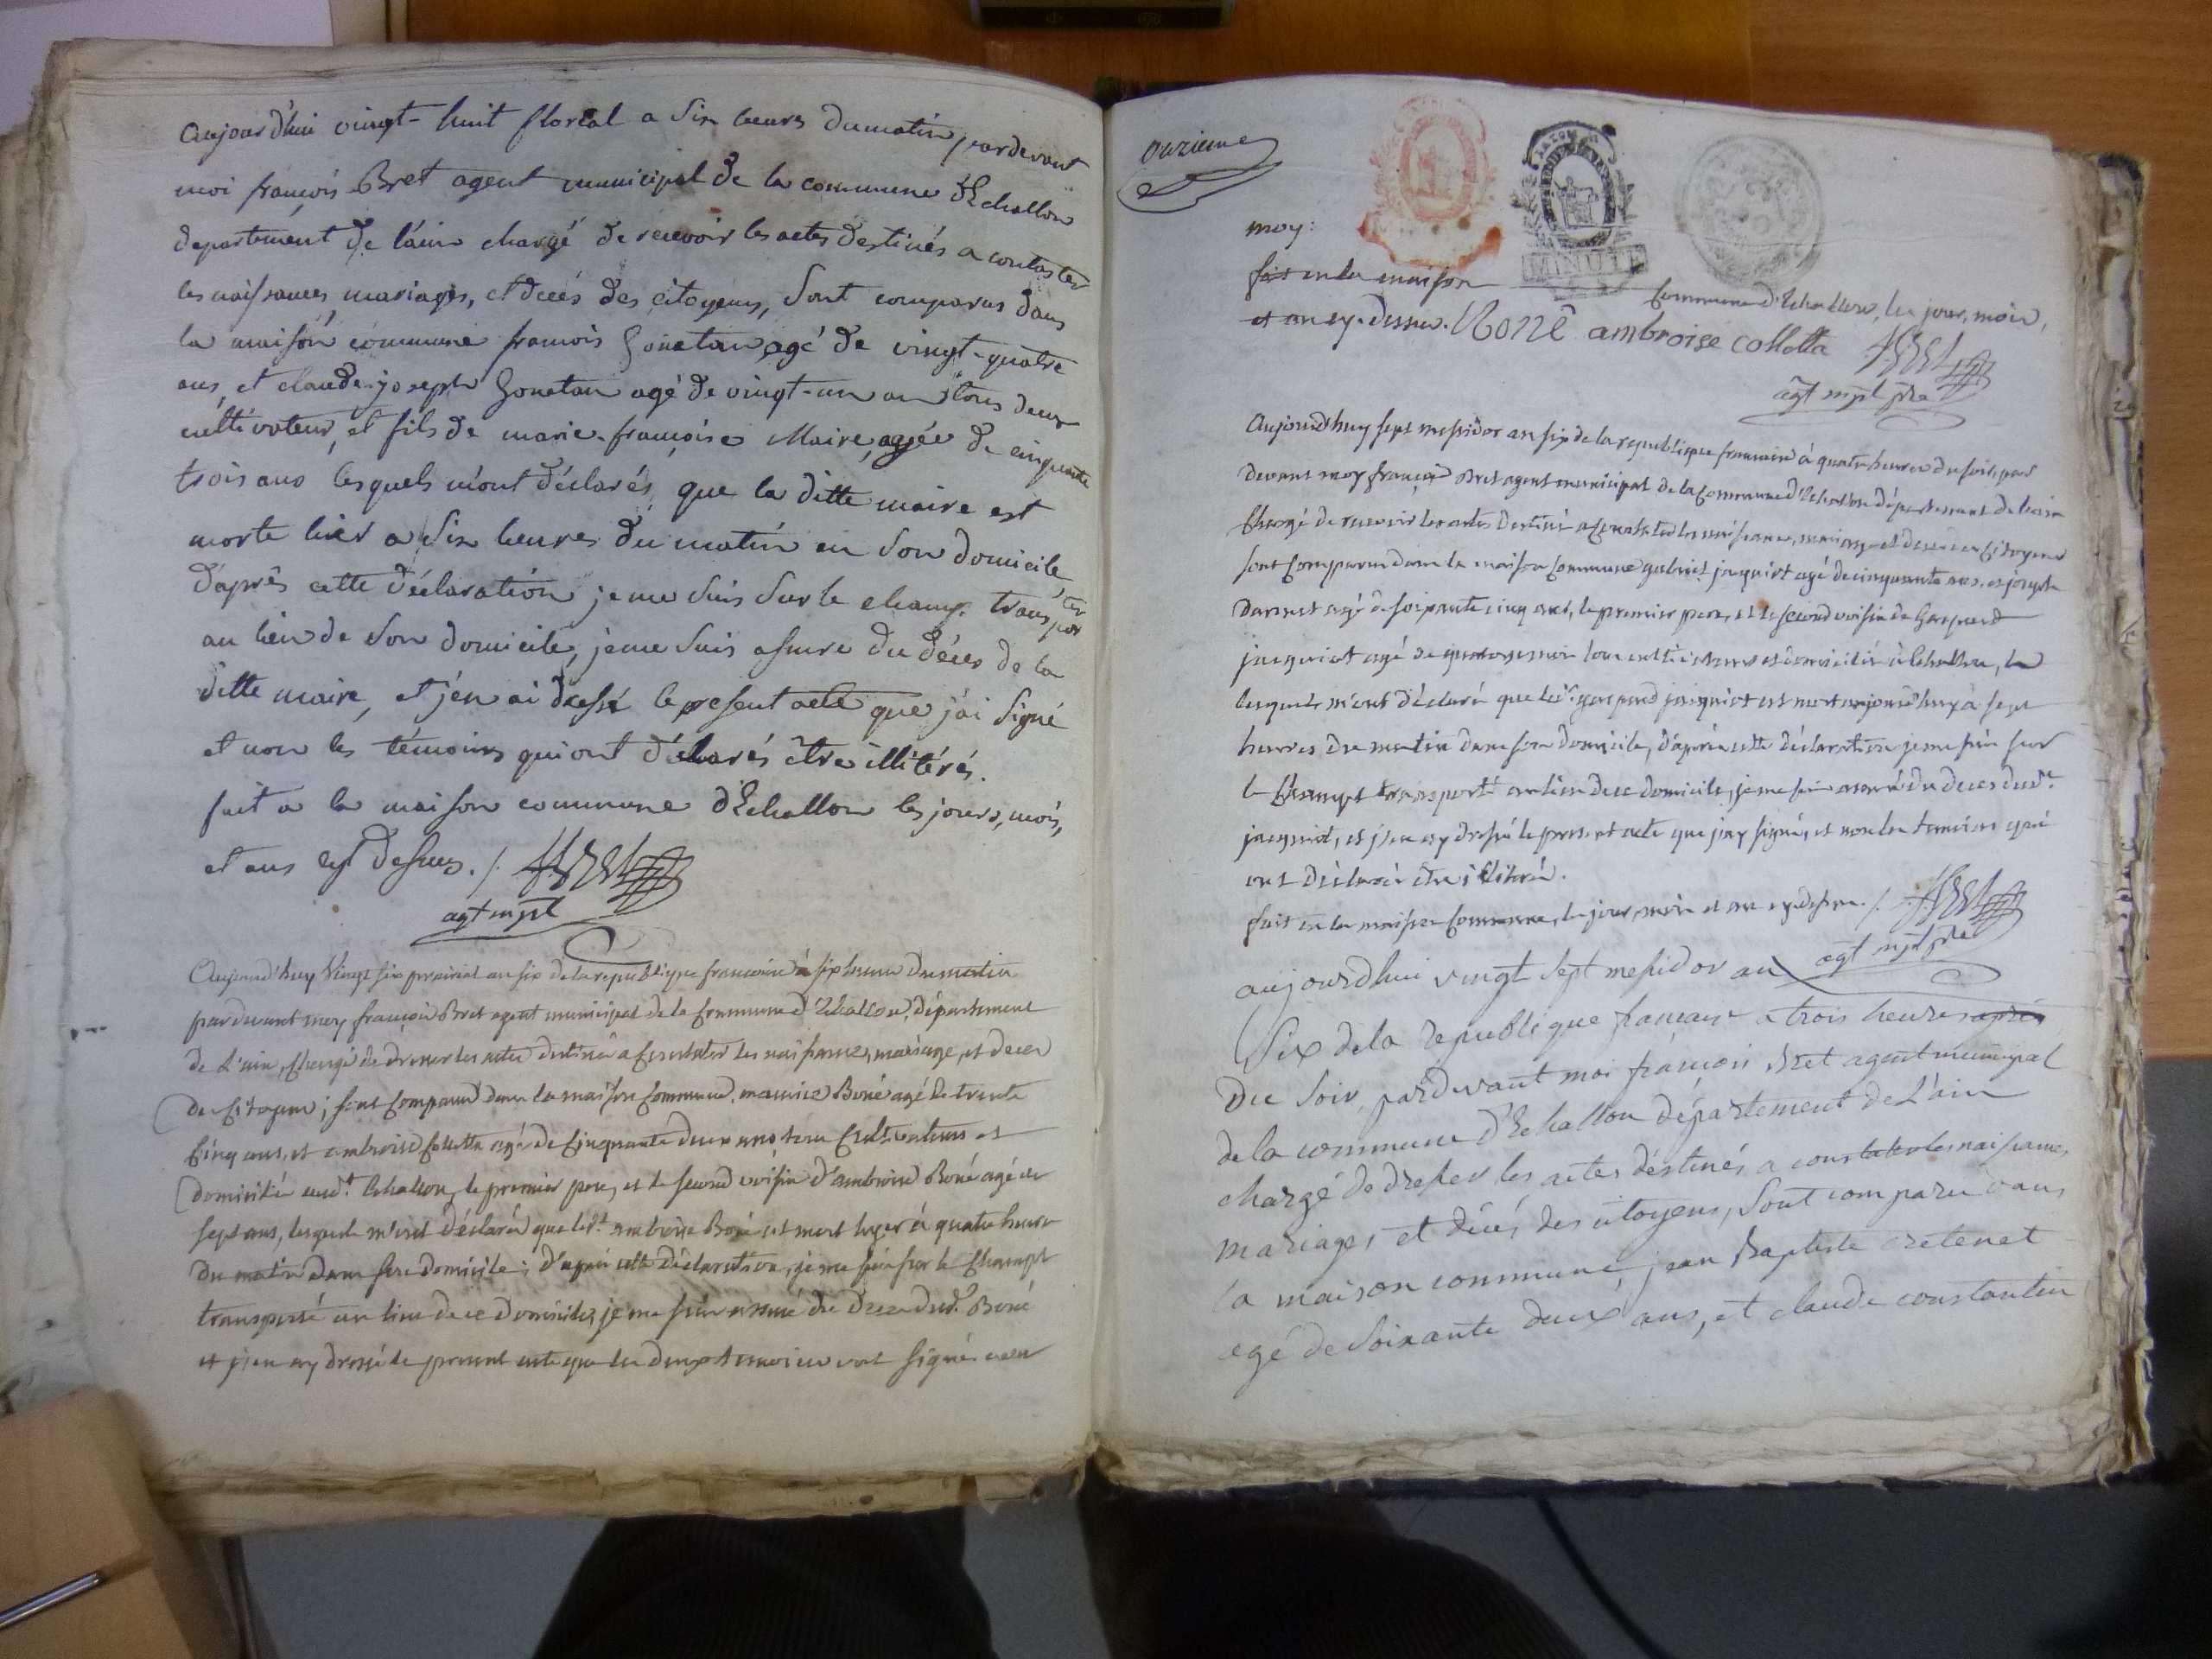 Aujourd'hui vingt-huit floréal a Six heures du matin pardevant
moi françois Bret agent municipal de la commune d'Echallon
departement de l'ain chargé de recevoir les actes destinés a constater
les naissances, mariages, et decés des citoyens, Sont comparus dans
la maison commune francois Gonetan agé de vingt-quatre
ans, et claude-joseph Gonetan agé de vingt-un an tous deux
cultivateur, et fils de marie-françoise Maire, agée de cinquante
trois ans lesquels m'ont déclarés, que la ditte maire est
morte hier a Six heures du matin en Son domicile
d'après cette déclaration je me Suis Sur le champ transporter
au lieu de Son domicile, je me Suis assuré du décès de la
ditte maire, et j'en ai dressé le present acte que j'ai Signé
et non les témoins qui ont déclarés être illitérés.
fait a la maison commune d'Echallon les jours, mois,
et ans cyt dessus ./. FBRET
agt mpl
Aujourd'huy Vingt six prairial an six de la republique francaise à six heures du matin
pardevant moy françois Bret agent municipal de la commune d'Echallon, département
de L'ain, chargé de dresser les actes destinés a constater les naissances, mariage, et deces
des citoyens; sont comparus dans la maison commune, maurice Boné agé de trente
cinq ans, et ambroise colletta agé de cinquante deux ans tous cultivateurs et
domicilié aud.t Echallon, le premier pere, et le second voisin d'ambroise Boné agé de
sept ans, lesquels m'ont déclaré que led.t ambroise Boné est mort hyer à quatre heure
du matin dans son domicile; d'après cette déclaration, je me suis sur le champt
transporté au lieu de ce domicile, je me suis assuré du deces dud.t Boné
et j'en ay dressé le present acte que les deux temoins ont signé avec
onzieme
moy:
MINUTE
fait en la maison commune d'Echallon, les jour, mois,
et an cy-dessus. Bonné ambroise colletta FBRET
agt mpl
Aujourd'huy sept messidor an six de la republique francaise à quatre heures du soir, par
devant moy françois Bret agent municipal de la commune d'Echallon département de l'ain
chargé de recevoir les actes destinés a constater les naissance, mariage et deces des citoyens
sont comparu dans la maison commune gabriel jacquiot agé de cinquante ans, et joseph
agé de soixante cinq ans, le premier pere, et le second voisin de Gaspard
jacquiot agé de mois tous cultivateurs et domiciliés à Echallon,
lesquels m'ont déclaré que led.t gaspard jacquiot est mort aujourd'huy à sept
heures du matin dans son domicile, d'après cette déclaration je me suis sur
le champt transporté au lieu de ce domicile, je me suis assuré du deces dud.t
jacquiot, et j'en ay dressé le present acte que j'ay signé, et non les temoins qui
ont déclaré être illitéré.
fait en la maison commune, le jour, mois et an cy dessus ./. FBRET
agt mpl
aujourdhui vingt sept messidor an
Six de la republique francaise a trois heures après
du Soir, pardevant moi francois Bret agent municipal
de la commune d'Echallon département de L'ain
chargé de dresser les actes déstinés a constater les naissances,
mariages et décés des citoyens, Sont comparu dans
la maison commune, jean Baptiste cretenet
agé de Soixante deux ans, et claude constantin